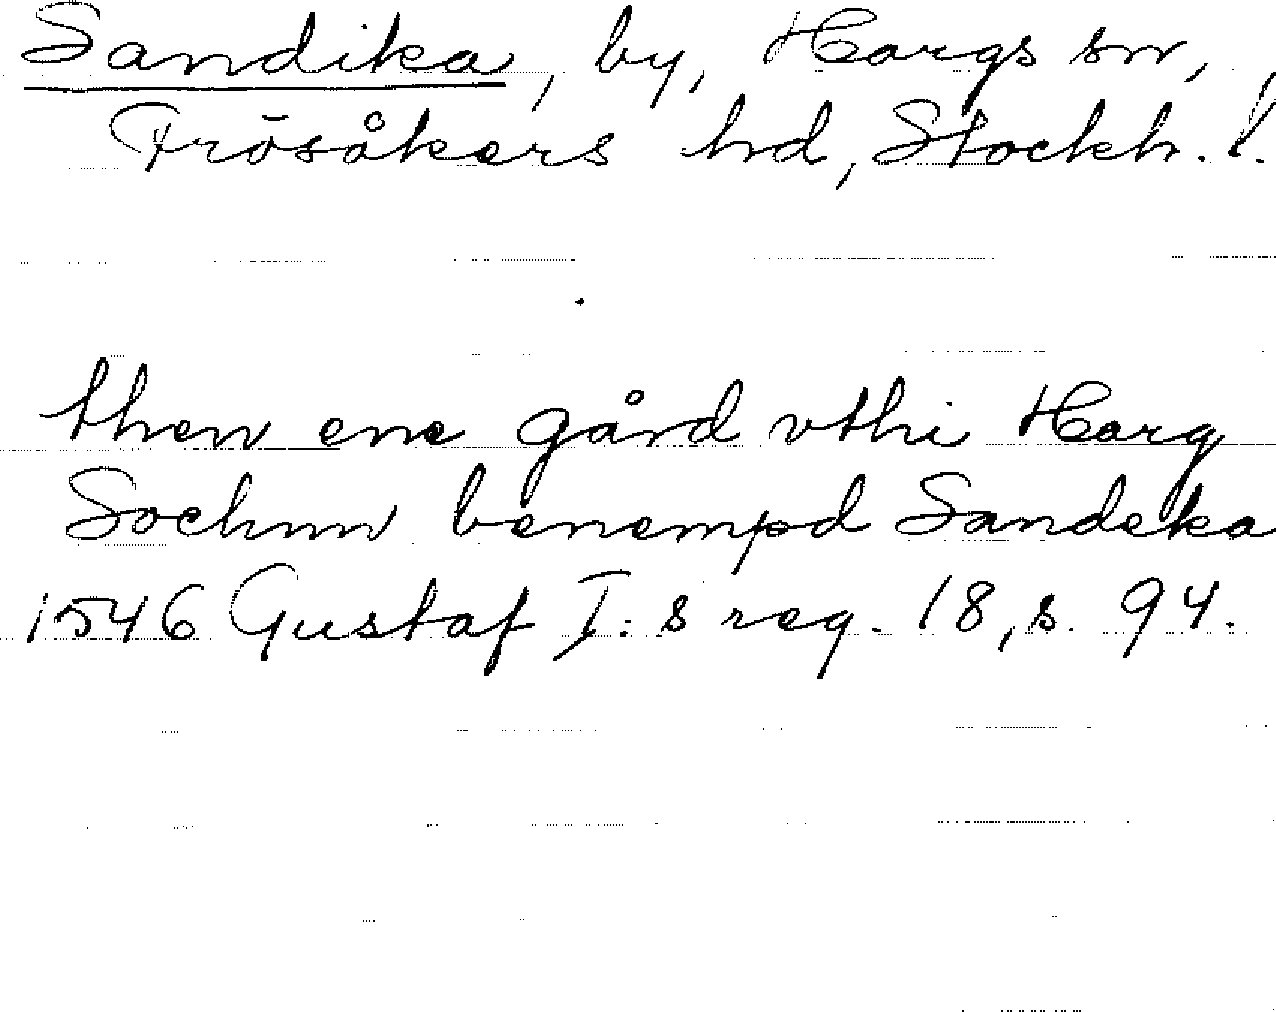 Sandika, by, Hargs sn,
Frösåkers hd, Stockh. l.
then ene gård vthi Harg
Sochnn benempd Sandeka
1546 Gustaf I:s reg. 18, s. 94.